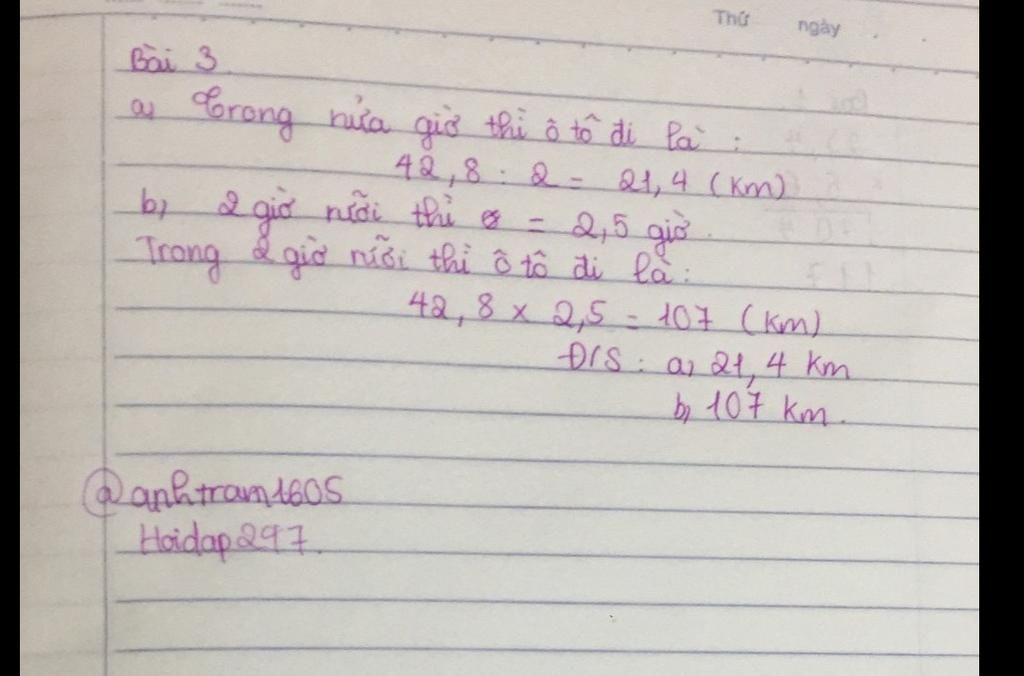 Thứ ngày
Bài 3
a, Trong nửa giờ thì ô tô đi là :
42,8 : 2 = 21,4 (km)
b, 2 giờ rưỡi thì = 2,5 giờ.
Trong 2 giờ rưỡi thì ô tô đi là:
42,8 x 2,5 = 107 (km)
Đ/S : a, 21,4 km
b, 107 km.
@anhtram1605
Hoidap247.